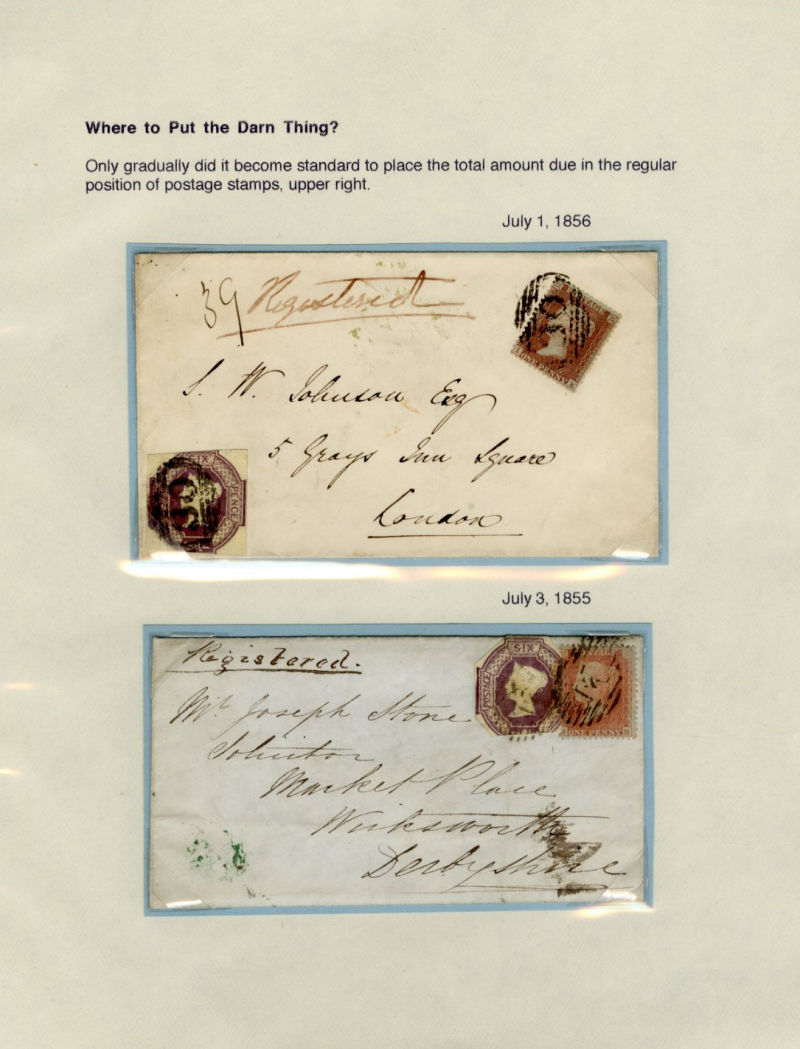 Where to Put the Darn Thing?
Only gradually did it become standard to place the total amount due in the regular
position of postage stamps, upper right.
July 1, 1856
39 Registered
ONE PENNY
S. W. Johnson Esq
5 Grays Inn Square
SIX
PENCE
London
July 3, 1855
Registered.
SIX
POSTAGE
ONE PENNY
Mr. Joseph Stone
Solicitor
Market Place
Wirksworth
Derbyshire